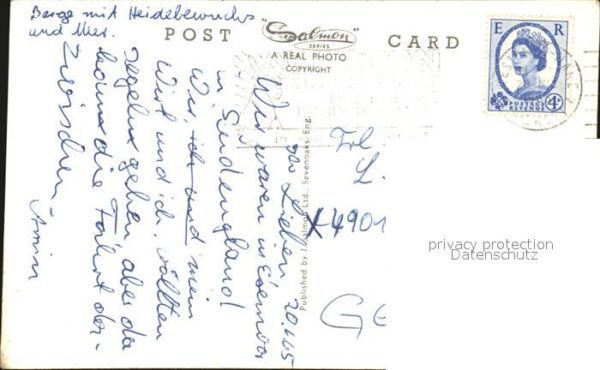 POST CARD
"Salmon"
SERIES
A REAL PHOTO
COPYRIGHT
E R
POSTAGE
REVENUE
4D
Published by J. Salmon Ltd., Sevenoaks, Eng.
Ihr Lieben 20.6.65
Wir waren in Exmoor
in Südengland!
Wir ich und mein
Wirt und ich. Wollten
segeln gehen aber da
kam die Fahrt da-
zwischen
Armin
Berge mit Heidebewuchs
und Meer.
Frl.
L.
X4901
GE
privacy protection
Datenschutz